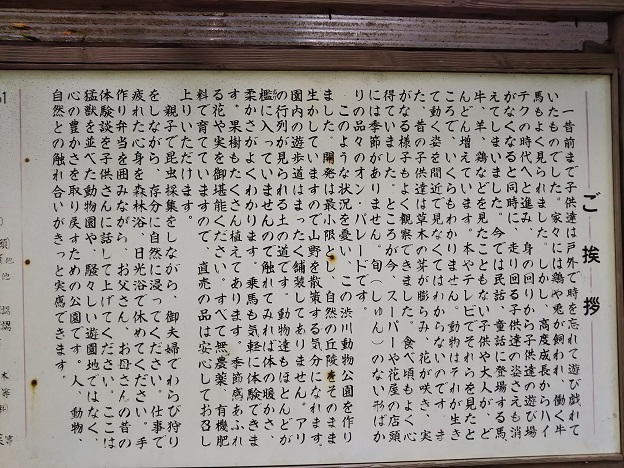 ご挨拶
一昔前まで子供達は戸外で時を忘れて遊び戯れて
いたものでした。家々には鶏や兎が飼われ、働く牛
馬もよく見られました。しかし、高度成長からハイ
テクの時代へと進み、身の回りから子供達の遊び場
がなくなると同時に、走り回る子供達の姿さえも消
えてしまいました。今では民話、童話に登場する馬、
牛、羊、鶏などを見たこともない子供や大人が、ど
んどん増えています。本やテレビでそれらを見たと
ころで、いくらもわかりません。動物はそれが生き
て動く姿を間近で見なくてはわからないのです。
た、昔の子供達は草木の芽が膨らみ、花が咲き、実
がなる様子もよく観察できました。食べ頃もよく心
得ていました。ところが今、スーパーや花屋の店頭
には季節がありません。旬（しゅん）のない形ばか
りの品々のオン・パレードです。
このような状況を憂い、この渋川動物公園を作り
ました。開発は最小限とし、自然の丘陵をそのまま
生かしていますので山野を散策する気分になれます。
園内の遊歩道はまったく舗装してありません。アリ
の行列が見られる土の道です。動物達もほとんどが
檻に入っていませんので触れてみれば体の暖かさ、
柔かさがよくわかります。乗馬も気軽に体験できま
す。果樹もたくさん植えてあります。季節感あふれ
る花や実を御堪能ください。すべて無農薬、有機肥
料で育てていますので、直売の品は安心してお召し
上りいただけます。
親子で昆虫採集をしながら、御夫婦でわらび狩り
をしながら、存分に自然に浸ってください。仕事で
疲れた心身を森林浴、日光浴で休めてください。手
作り弁当を囲みながら、お父さん、お母さんの昔の
体験談を子供さんに話して上げてください。ここは
猛獣を並べた動物園や、騒々しい遊園地ではなく、
心の豊かさを取り戻すための公園です。人、動物、
自然との触れ合いがきっと実感できます。